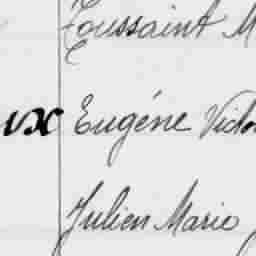 Toussaint M
ux Eugéne Victo
Julien Marie